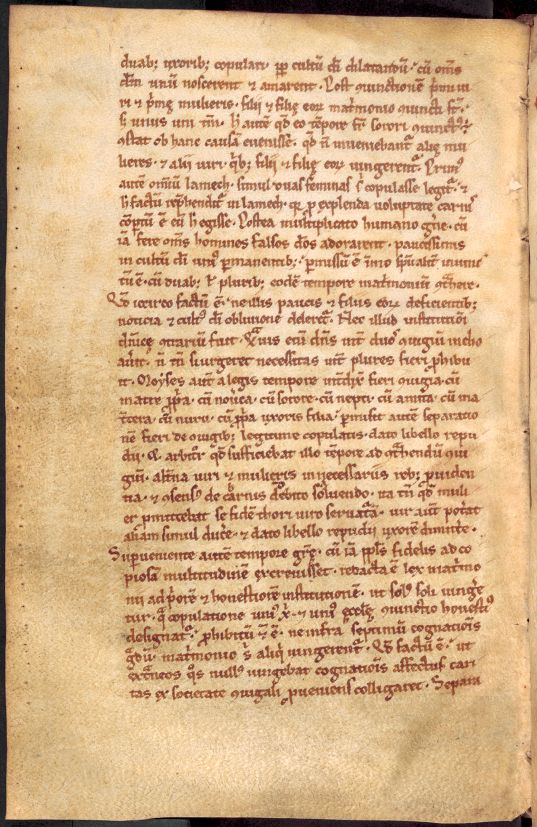 duab; uxorib; copulari · ꝓp cultū dī dilatandū · cū om̄s
dm̄ unū noscerent ⁊ amarent · Post ↄiunctionē p̄mi ui
ri ⁊ p̄mę mulieris · filii ⁊ filię eoꝝ mat̄monio ↄiuncti st̄ ·
⁊ unus uni tm̄ · h̄ autē qd̄ eo tēpore fr̄ sorori ↄiunctꝰ ē
ↄstat ob hanc causā euenisse · qd̄ n̄ inueniebant᷑ alię mu
lieres · ⁊ alii uiri · qͥb; filii ⁊ filię eoꝝ iungerent᷑ · Primꝰ
autē om̄iū lamech · simul duas feminas copulasse legit᷑ · ⁊
h̄ factū rep̄hendit᷑ in lamech · qꝛ ꝓ explenda uoluptate carnis
ē eū h̄ egisse · Postea multiplicato humano gn̄e · cū
iā fere om̄s homines falsos dōs adorarent · paucissimis
in cultu dī unꝰ ꝑmanentib; · ꝑmissū ē
tū ē · cū duab; ł plurib; eodē tempore mat̄moniū ↄt̄here ·
Qd̄ iccirco factū ē · ne illis paucis ⁊ filiis eoꝝ deficientib;
noticia ⁊ cultꝰ dī obliuione deleret᷑ · Nec illud institutioni
dn̄icę ↄt̄riū fuit · Qͣuis eni dn̄s int̄ duos ↄiugiū incho
auit · n̄ tn̄ si urgeret necessitas int̄ plures fieri ꝓhibu
it · Moyses aut̄ a legis tempore int̄dixit fieri ↄiugia · cū
matre ꝓp̄a · cū nouerca · cū sorore · cū nepti · cū amita · cū ma
t̄tera · cū nuru · cū ꝓp̄a uxoris filia · ꝑmisit autē separatio
nē fieri de ↄiugib; legitime copulatis · dato libello repu
dii · Qd̄ arbitror qd̄ sufficiebat illo tēpore ad ↄt̄hendū ↄiu
giū · alt̄na uiri ⁊ mulieris in necessariis reb; ꝓuiden
tia · ⁊ ↄsensꝰ de carnis debito soluendo · ita tn̄ qd̄ muli
er ꝓmittebat se fidē thori uiro seruaturā · uir aut̄ pot̄at
aliam simul ducere · ⁊ dato libello repudii uxorē dimitt̄e ·
Superueniente autē tempore gr̄ę · cū iā ppl̄s fidelis ad co
piosā multitudinē excreuisset · redacta ē lex mat̄mo
nii ad p̄orē ⁊ honestiorē institutionē · ut solꝰ soli iunge
tur · qͣ copulatione unꝰ xp̄i ⁊ uniꝰ ecclę ↄiunctio honestiꝰ
designat᷑ · ꝓhibitū ⁊ ē · ne infra septimū cognationis
gͣdū mat̄monio alīqͥ iungerent᷑ · Qd̄ factū ē · ut
ext̄neos qͦs nullꝰ iungebat cognationis affectus cari
tas ex societate ↄiugali ꝓueniens colligaret · Separa